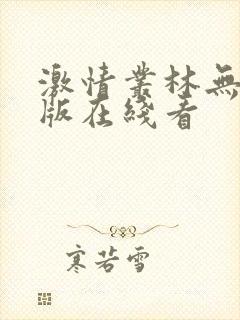 激情丛林無
版在綫看
寒若雪